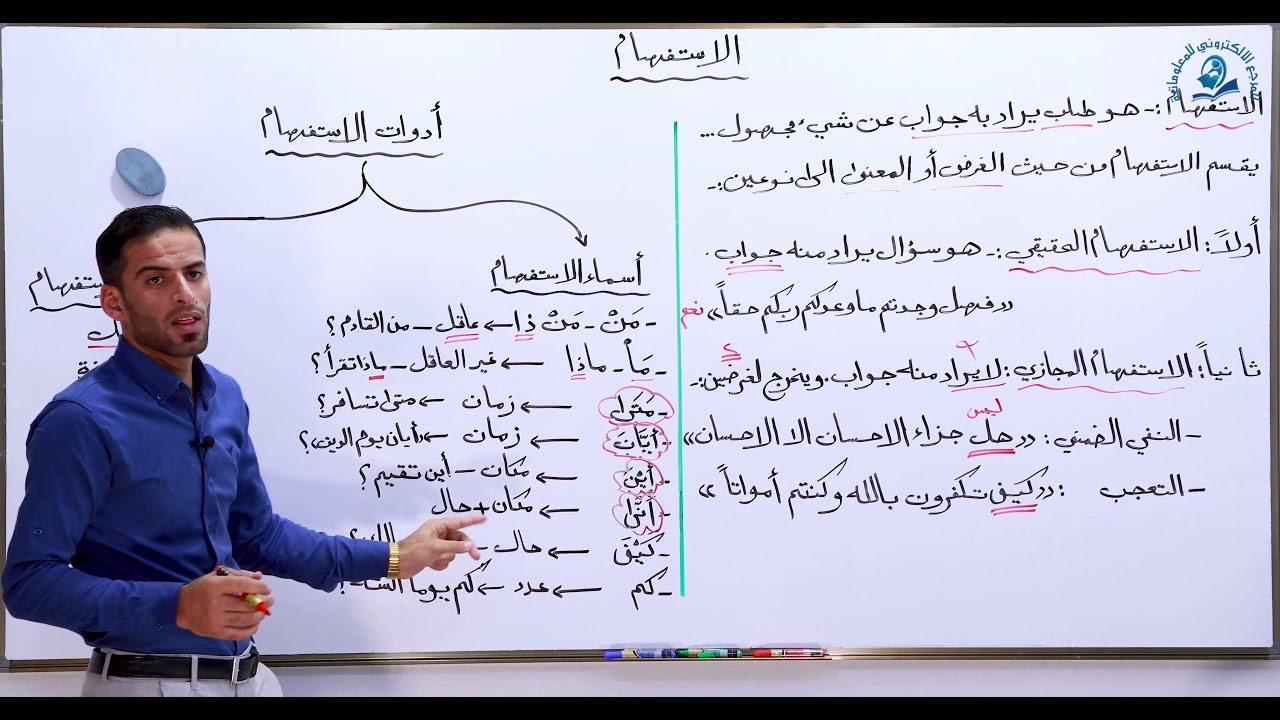 الاستفهام
المرجع الالكتروني للمعلوماتية
الاستفهام :- هو طلب يراد به جواب عن شيء مجهول ...
يقسم الاستفهام من حيث الغرض أو المعنى الى نوعين :-
أولاً : الاستفهام الحقيقي :- هو سؤال يراد منه جواب .
((فهل وجدتم ما وعدكم ربكم حقاً)) نعم
ثانياً : الاستفهام المجازي : لا يراد منه جواب ، ويخرج لغرضين :-
ليس
- النفي الضمني : ((هل جزاء الاحسان الا الاحسان))
- التعجب : ((كيف تكفرون بالله وكنتم أمواتاً))
أدوات الاستفهام
أسماء الاستفهام
- مَنْ - مَنْ ذا ← عاقل - من القادم ؟
- مَا - ماذا ← غير العاقل - ماذا تقرأ ؟
- مَتَى ← زمان ← متى تسافر ؟
- أيّانَ ← زمان ← ((أيان يوم الدين)) ؟
- أيْنَ ← مكان - أين تقيم ؟
- أنّى ← مكان + حال
- كَيْفَ ← حال -
- كم ← عدد ← كم يوما
ستفهام